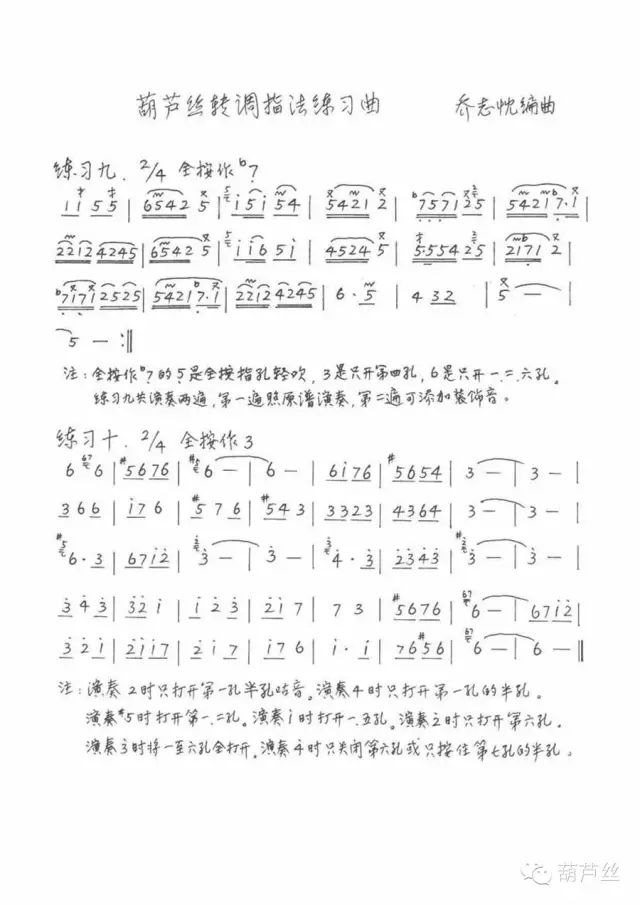 葫芦丝转调指法练习曲 乔志忱编曲
练习九. 2/4 全按作b7
1 1 5 5 | 6542 5 | i 5 i 54 | 5421 2 | b7571 25 | 54217·1 |
2212 4245 | 6542 5 | i i 6 5 i | 4524 5 | 5554 25 | 2171 2 |
b7171 2525 | 54217·1 | 2212 4245 | 6·5 | 4 32 | 5 — |
5 — :‖
注:全按作b7的5是全按指孔轻吹,3是只开第四孔,6是只开一.二.六孔。
练习九共演奏两遍,第一遍照原谱演奏,第二遍可添加装饰音。
练习十. 2/4 全按作3
6 67 6 | #5676 | #5 6 — | 6 — | 6i76 | #5654 | 3 — | 3 — |
3 6 6 | i 7 6 | #5 7 6 | #5 4 3 | 3323 | 4364 | 3 — | 3 — |
#5 6·3 | 67i2 | 2 3 — | 3 — | 3 4·3 | 2343 | #2 3 — | 3 — |
3 4 3 | 3 2 i | i 2 3 | 2 i 7 | 7 3 | #5676 | 67 6 — | 67i2 |
3 2 i | 2 i i 7 | 2 i 7 | i 7 6 | i· i | 765#6 | 67 6 — | 6 — ‖
注:演奏2时只打开第一孔半孔咕音。演奏4时只打开第一孔的半孔。
演奏#5时打开第一.二孔。演奏i时打开一.五孔。演奏2时只打开第六孔。
演奏3时将一至六孔全打开。演奏4时只关闭第六孔或只按住第七孔的半孔。
葫芦丝